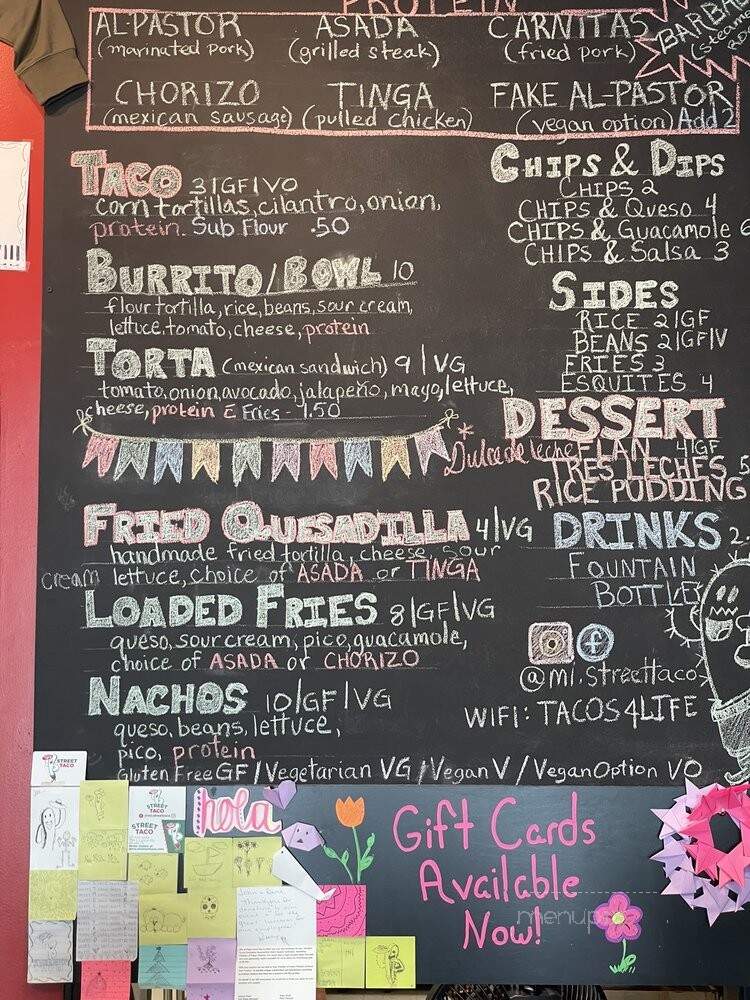 PROTEIN
AL-PASTOR
(marinated pork)
ASADA
(grilled steak)
CARNITAS
(fried pork)
CHORIZO
(mexican sausage)
TINGA
(pulled chicken)
FAKE AL-PASTOR
(vegan option) Add 2
TACO 3|GF|VO
corn tortillas, cilantro, onion,
protein. Sub Flour .50
BURRITO/BOWL 10
flour tortilla, rice, beans, sour cream,
lettuce, tomato, cheese, protein
TORTA (mexican sandwich) 9 | VG
tomato, onion, avocado, jalapeño, mayo, lettuce,
cheese, protein & Fries - 1.50
FRIED QUESADILLA 4|VG
handmade fried tortilla, cheese, sour
cream lettuce, choice of ASADA or TINGA
LOADED FRIES 8|GF|VG
queso, sour cream, pico, guacamole,
choice of ASADA or CHORIZO
NACHOS 10|GF|VG
queso, beans, lettuce,
pico, protein
Gluten Free GF / Vegetarian VG / Vegan V / Vegan Option VO
CHIPS & DIPS
CHIPS 2
CHIPS & QUESO 4
CHIPS & GUACAMOLE 6
CHIPS & SALSA 3
SIDES
RICE 2|GF
BEANS 2|GF|V
FRIES 3
ESQUITES 4
DESSERT
*Dulce de leche FLAN 4|GF
TRES LECHES 5
RICE PUDDING
DRINKS 2.
FOUNTAIN
BOTTLE
@mi.streettaco
WIFI: TACOS4LIFE
STREET
TACO
STREET
TACO
hola
Gift Cards
Available
Now!
menupix